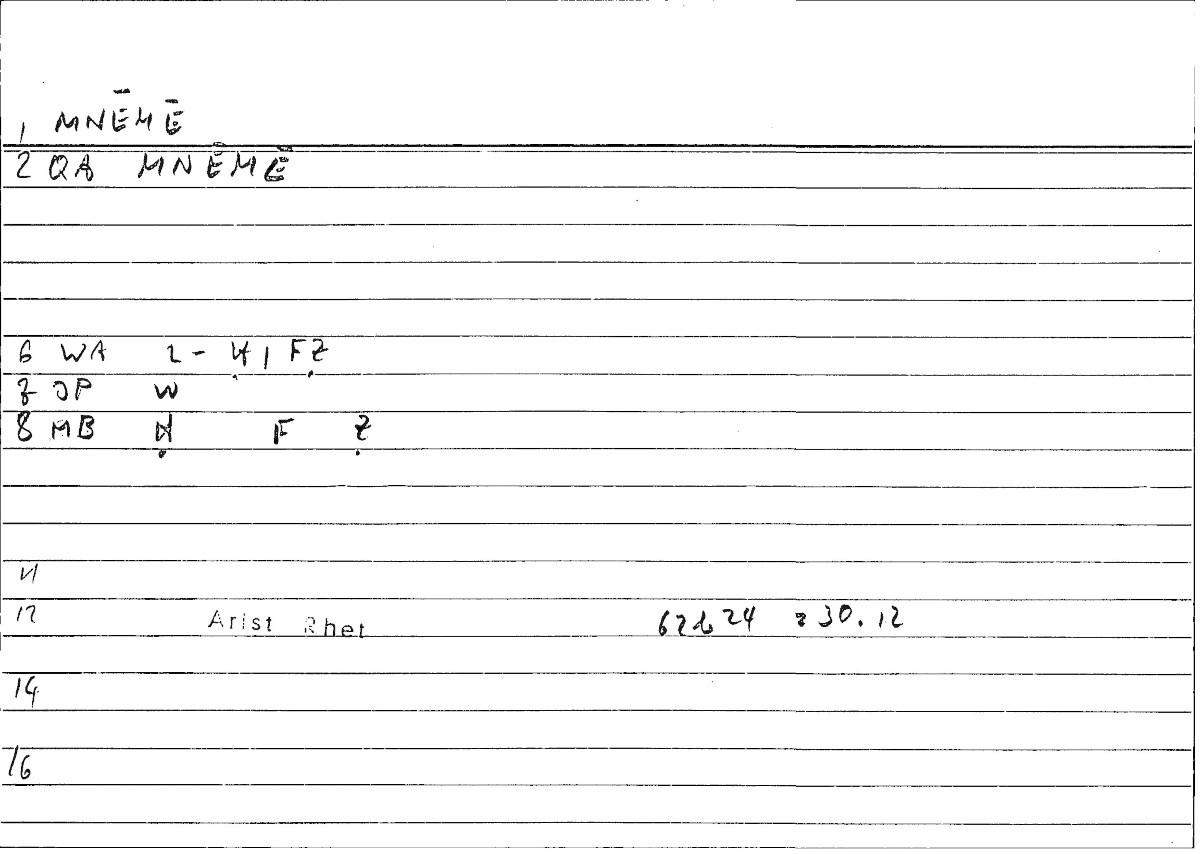 1 MNĒMĒ
2 QA MNĒMĒ
6 WA 2 - Ḥ, FẒ
7 OP W
8 MB Ḥ F Ẓ
11
12 Arist Rhet 62b24 = 30.12
14
16